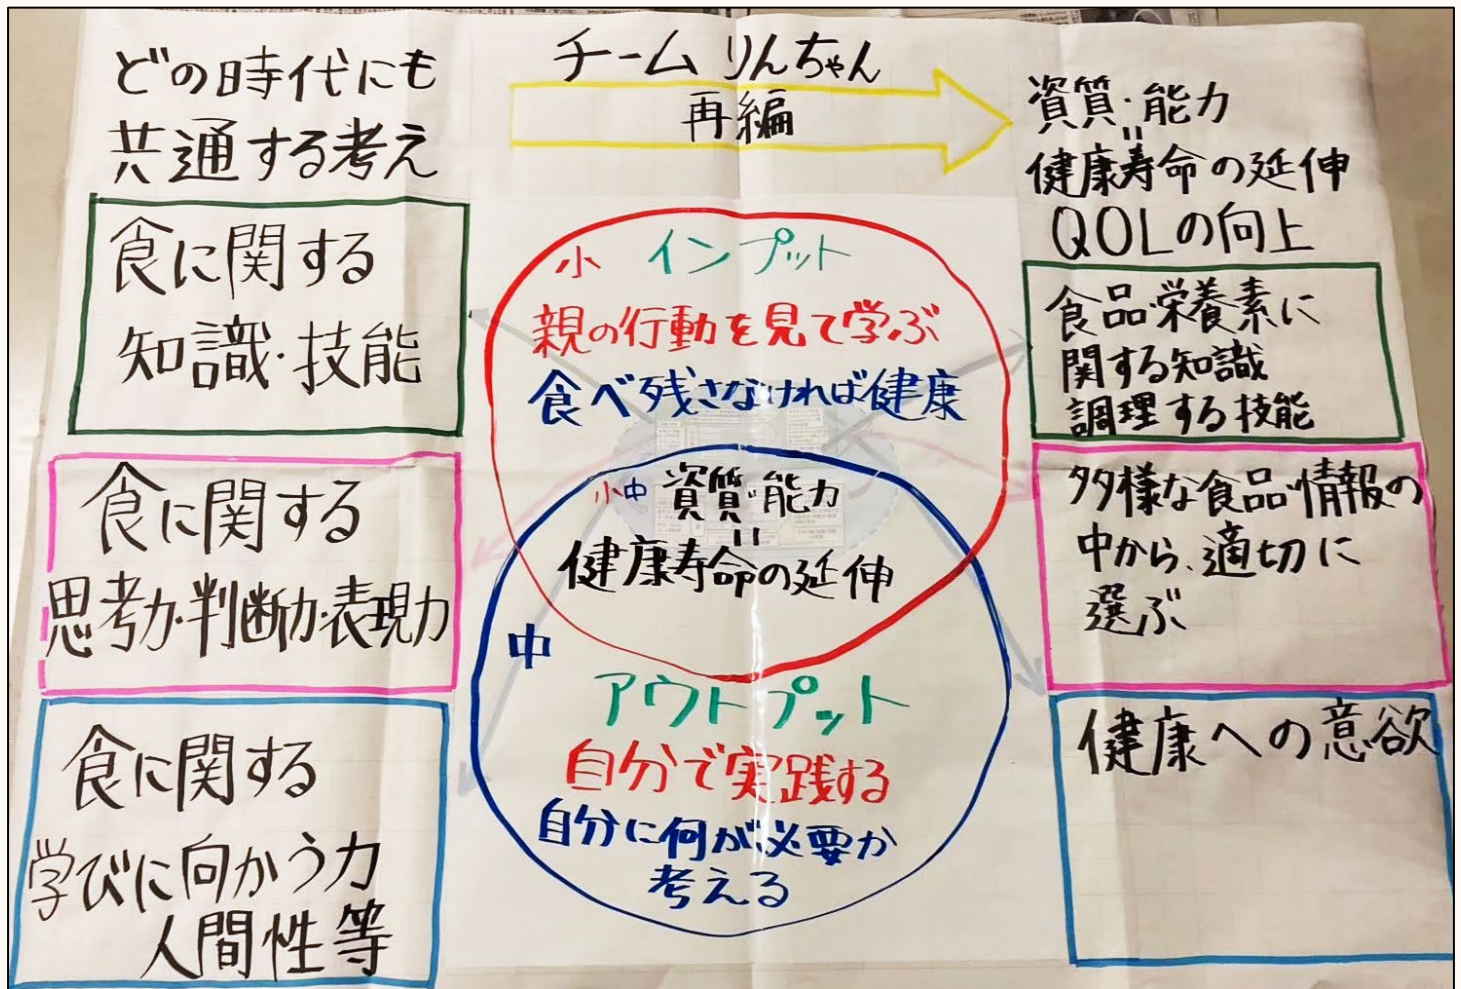 どの時代にも
共通する考え
食に関する
知識・技能
食に関する
思考力・判断力・表現力
食に関する
学びに向かう力
人間性等
チーム りんちゃん
再編
小 インプット
親の行動を見て学ぶ
食べ残さなければ健康
小中 資質・能力
=
健康寿命の延伸
中
アウトプット
自分で実践する
自分に何が必要か
考える
資質・能力
=
健康寿命の延伸
QOLの向上
食品・栄養素に
関する知識
調理する技能
多様な食品・情報の
中から、適切に
選ぶ
健康への意欲